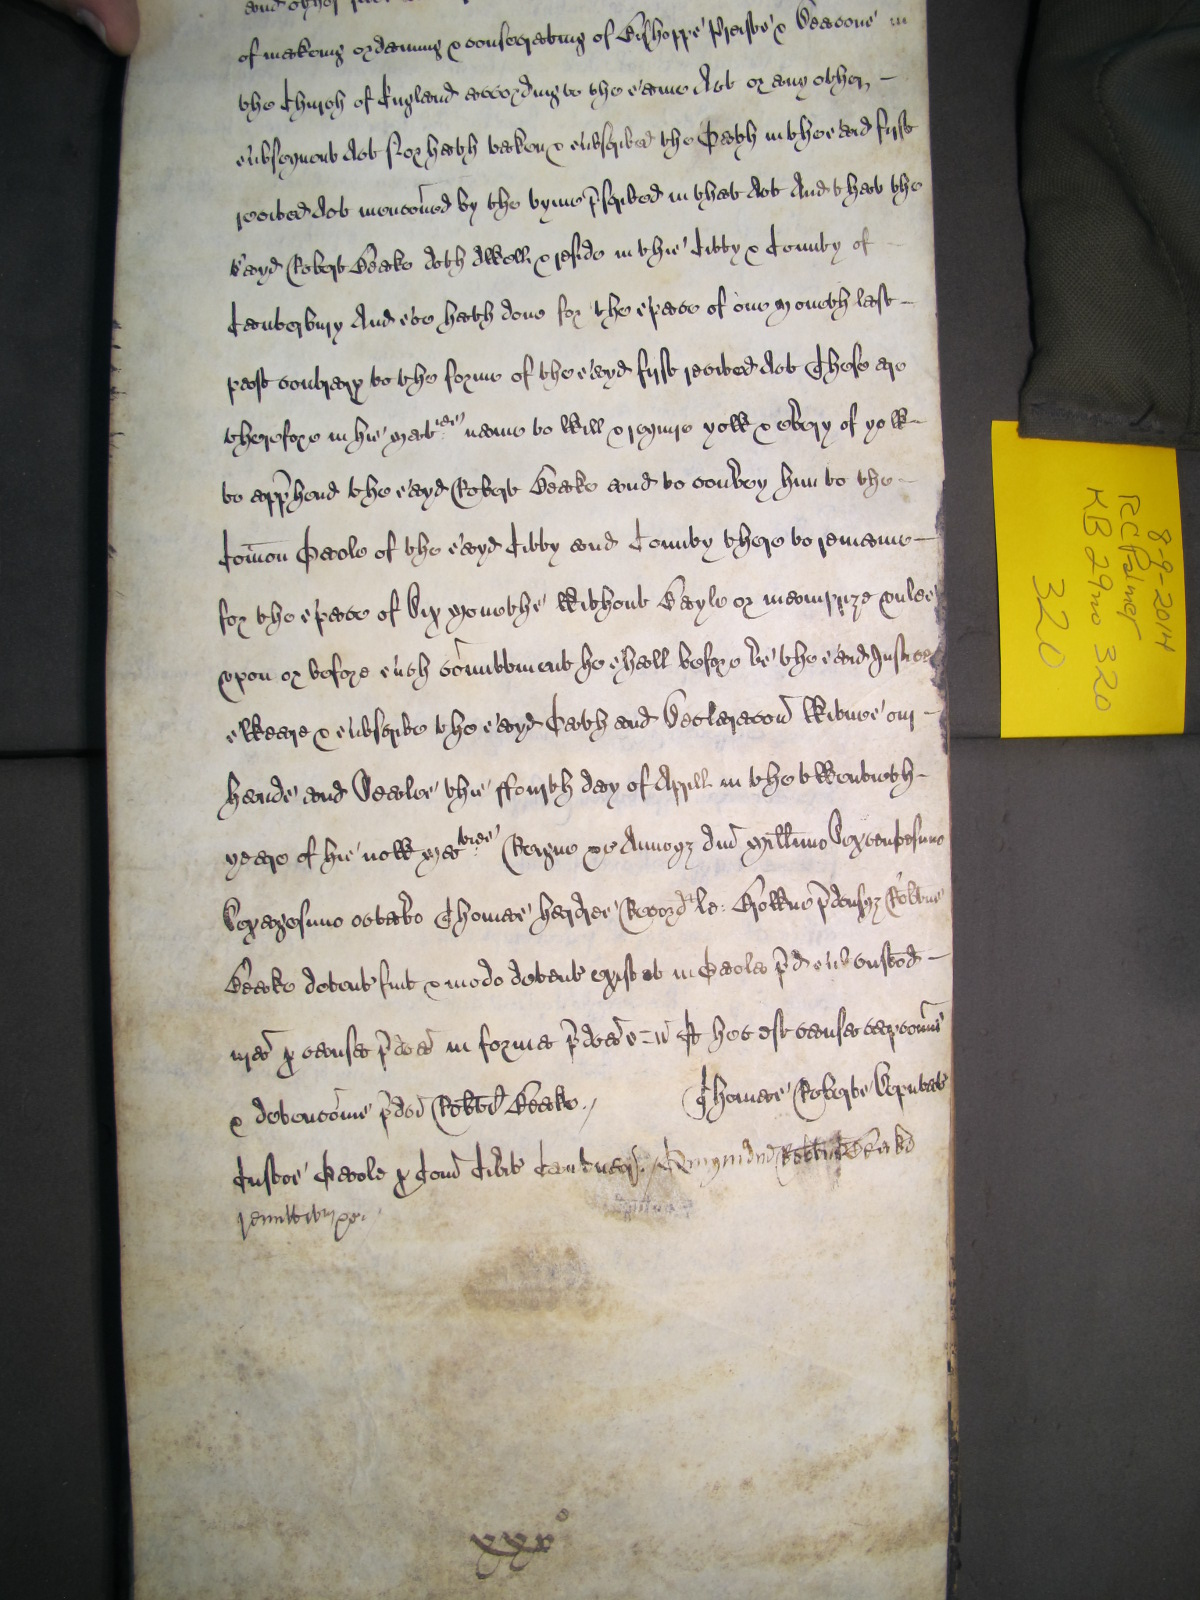 of makeing ordaining & consecrating of Bishopps Preists & Deacons in
the Church of England according to the same Act or any other
subsequent Act Nor hath taken & subscribed the Oath in the said first
recited Act menconed by the tyme p̃scribed in that Act And that the
sayd Robert Beake doth dwell & reside in this Citty & County of
Canterbury And soe hath done for the space of one moneth last
past contrary to the forme of the sayd first recited Act These are
therefore in his Ma^ties name to will & require yow & every of yow
to app̃hend the sayd Robert Beake and to convey him to the
Com̃on Gaole of the sayd Citty and County there to remaine
for the space of Six Moneths without Bayle or mainprize unles
upon or before such com̃ittment he shall before us the said Justices
sweare & subscribe the sayd Oath and Declaracon Witnes our
hands and Seales this ffourth day of Aprill in the twentieth
yeare of his now Ma^ties Reigne &c Annoq; dñi Mill̃imo Sexcentesimo
Sexagesimo octavo Thomas hardres Record^r le: Bròwne p̃dcusq; Rob̃tus
Beake detent fuit & modo detent existit in Gaola p̃d sub custod
mea p causa p̃dca in forma p̃dca Et hoc est causa capcõnis
& detencõnis p̃dcĩ Rob̃ti Beake
Thomas Roberts Deputat
Custos Gaole p Com̃ Civit Cantuar
remittitur &c
xxx
8-9-2014
RC Palmer
KB 29 no 320
320